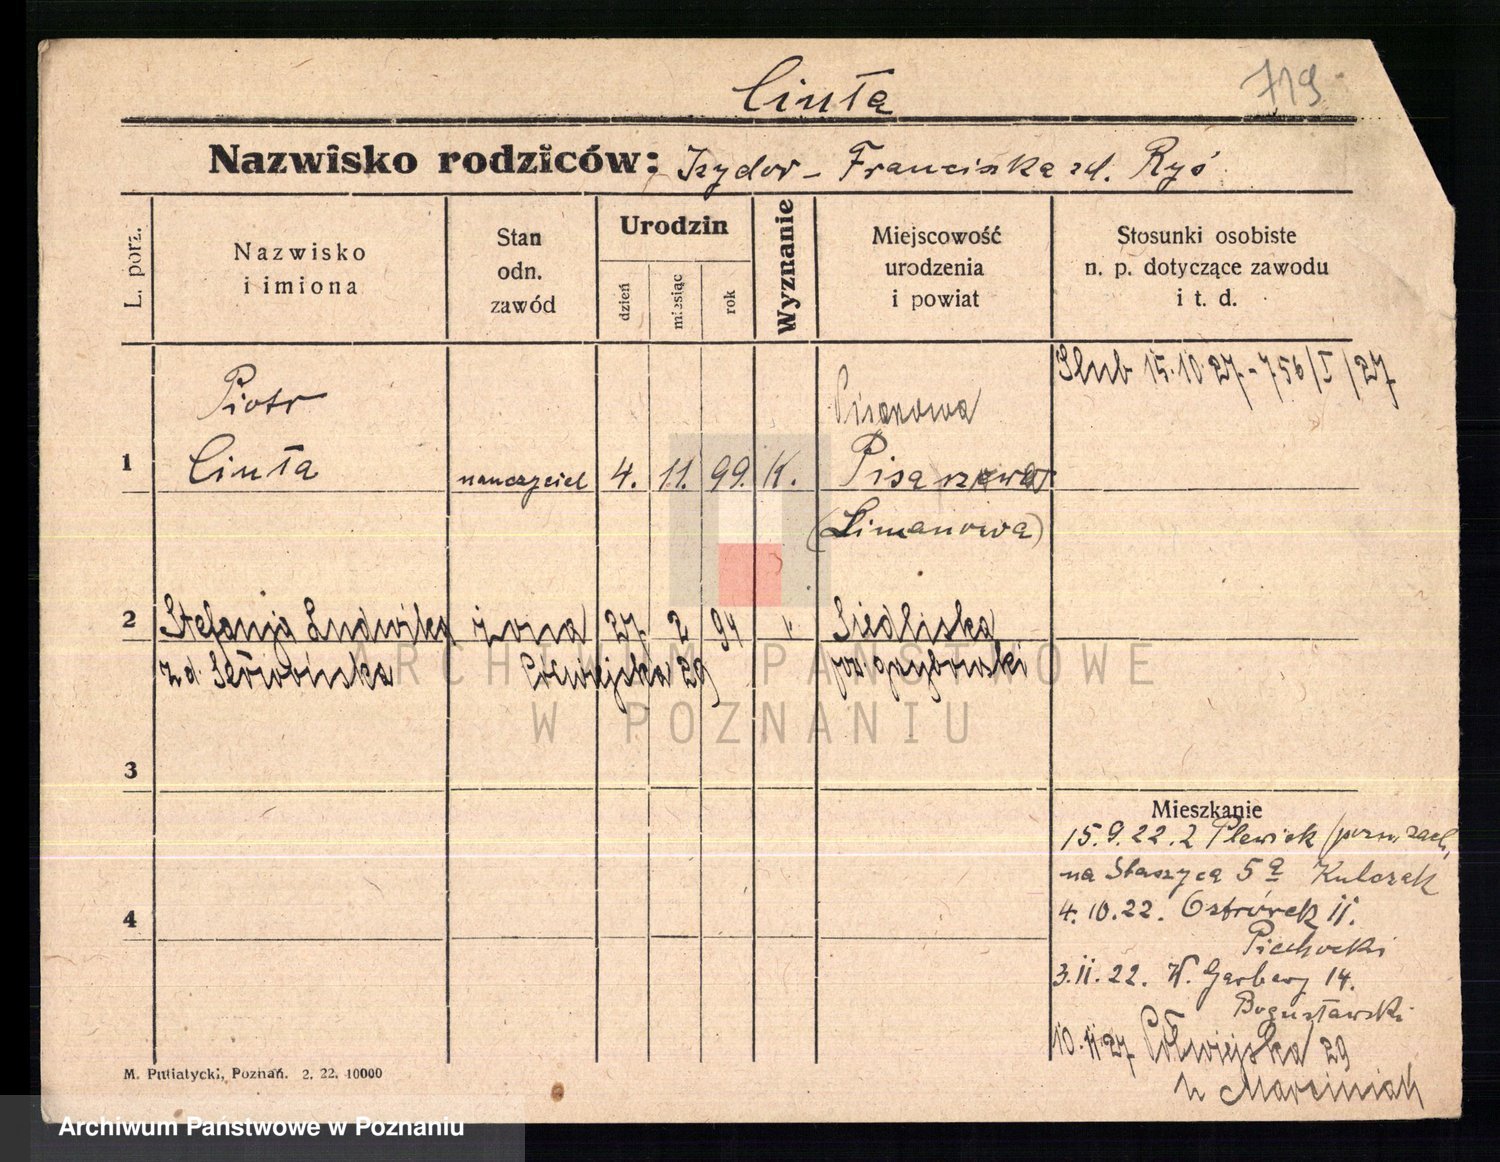 Ciuła
719
Nazwisko rodziców: Izydor - Franciszka zd. Ryś
L. porz.
Nazwisko
i imiona
Stan
odn.
zawód
Urodzin
dzień
miesiąc
rok
Wyznanie
Miejscowość
urodzenia
i powiat
Stosunki osobiste
n. p. dotyczące zawodu
i t. d.
Ślub 15.10.27 - 756/I/27
Piotr
Pisanowa
1 Ciuła nauczyciel 4. 11. 99. K.
(Limanowa)
2 Stefanja Ludwika żona 27 2 94 Siedliska
zd. 29 pow. grybowski
3
Mieszkanie
15.9.22. z Plewisk /pozn. zach.
na Staszyca 5a Kulczak
4
4.10.22. Ostrówek 11.
Piechocki
3.11.22. W. Garbary 14.
Bogusławski
10.11.27 Półwiejska 29
u Marciniak
M. Putiatycki, Poznań. 2. 22. 10000
ARCHIWUM PAŃSTWOWE
W POZNANIU
Archiwum Państwowe w Poznaniu